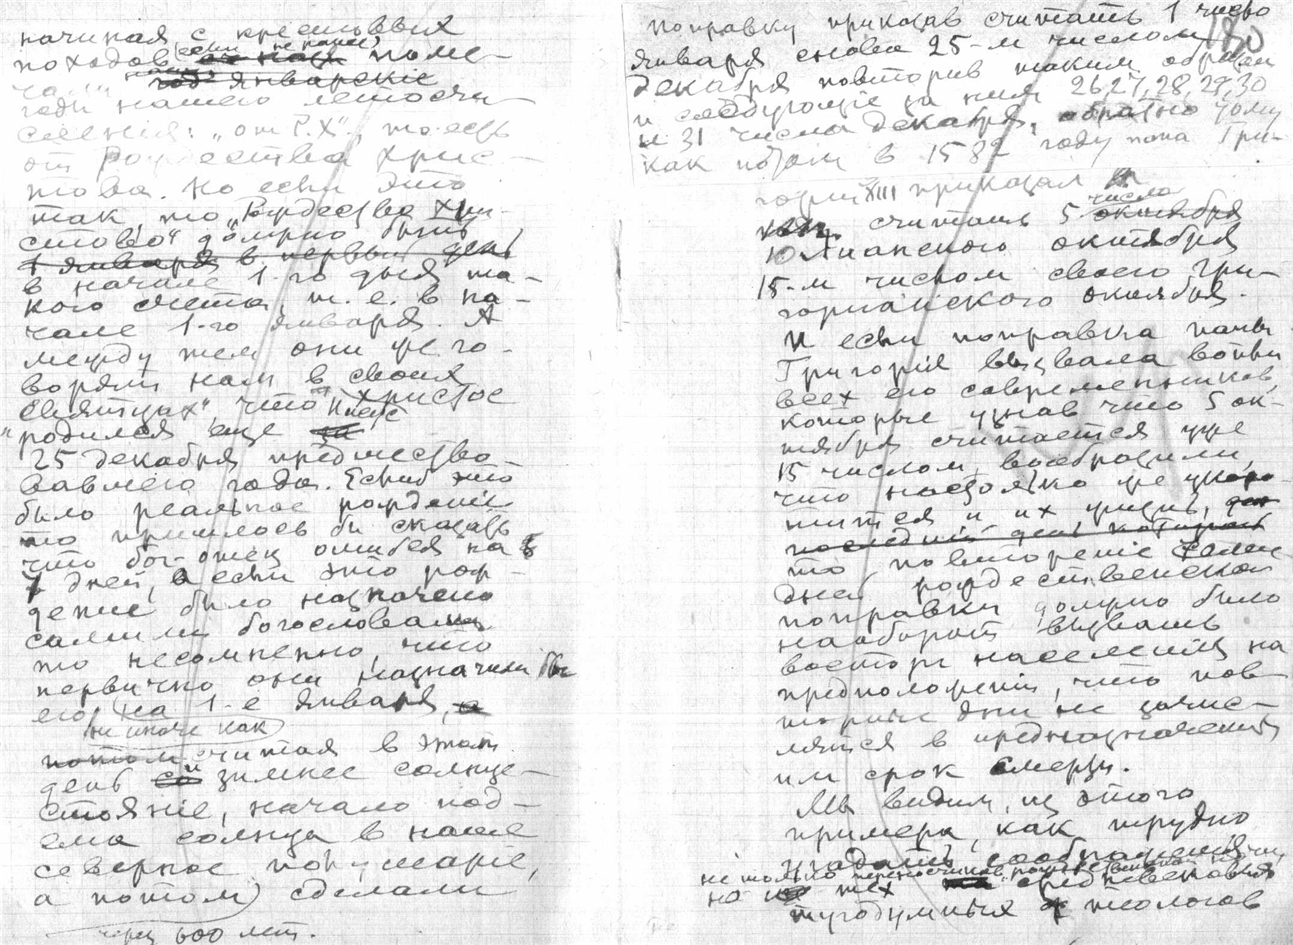 начиная с крестовых
походов (если не ранее) поме-
чали январские
годы нашего летосчи-
сления: „от Р.Х“, то-есть
от Рождества Хрис-
това. Но если это
так то „Рождество Хри-
стово“ должно быть
1 января в первый день
в начале 1-го дня та-
кого счета т. е. в на-
чале 1-го января. А
между тем они же го-
ворят нам в своих
„Святцах“, что Христос
Иисус
родился еще
25 декабря предшество-
вавшего года. Если б это
было реальное рожденье
то пришлось бы сказать
что бог-отец ошибся на
7 дней, а если это рож-
дение было назначено
самими богословами,
то несомненно, что
первично они назначили бы
его на 1-е января,
(не иначе как
потом считая в этот
день и зимнее солнце-
стояніе, начало под-
ема солнца в наше
северное полушаріе,
а потом) сделали
через 600 лет.
180
поправку, приказав считать 1 число
января снова 25-м числом
декабря повторив таким образом
и следующіе за ним 26, 27, 28, 29, 30
и 31 числа декабря, обратно тому
как потом в 1582 году папа Гри-
горий XIII приказал
считать 5 число октября
Юлианского октября
15-м числом своего Гри-
горианского октября.
И если поправка папы
Григорія вызвала вопли
всех его современников,
которые узнав что 5 ок-
тября считается уже
15 числом, вообразили,
что настолько же укоро-
тится и их жизнь,
последний день
то повтореніе семи
дней рождественской
поправки должно было
наоборот вызвать
восторг населения на
предположеніи, что пов-
торные дни не зачис-
лятся в предназначенный
им срок смерти.
Мы видим, из этого
примера, как трудно
угадать соображения
не только
но тех средневековых
тугодумных теологов